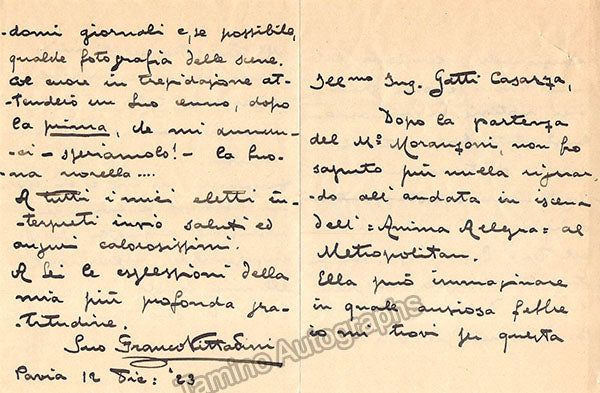 Ill.mo Ing. Gatti Casazza,
Dopo la partenza
del M.o Moranzoni, non ho
saputo più nulla riguar-
do all'andata in iscena
dell' =Anima Allegra= al
Metropolitan.
Ella può immaginare
in quale ansiosa febbre
io mi trovi per questa
-domi giornali e, se possibile,
qualche fotografia delle scene.
Col cuore in trepidazione at-
-tenderò un Suo cenno, dopo
la prima, che mi annun-
-ci - speriamolo! - la buo-
-na novella....
A tutti i miei eletti in-
-terpreti invio saluti ed
auguri calorosissimi.
A Lei le espressioni della
mia più profonda gra-
-titudine.
Suo Franco Vittadini
Pavia 12 Dic: '23
Tamino Autographs